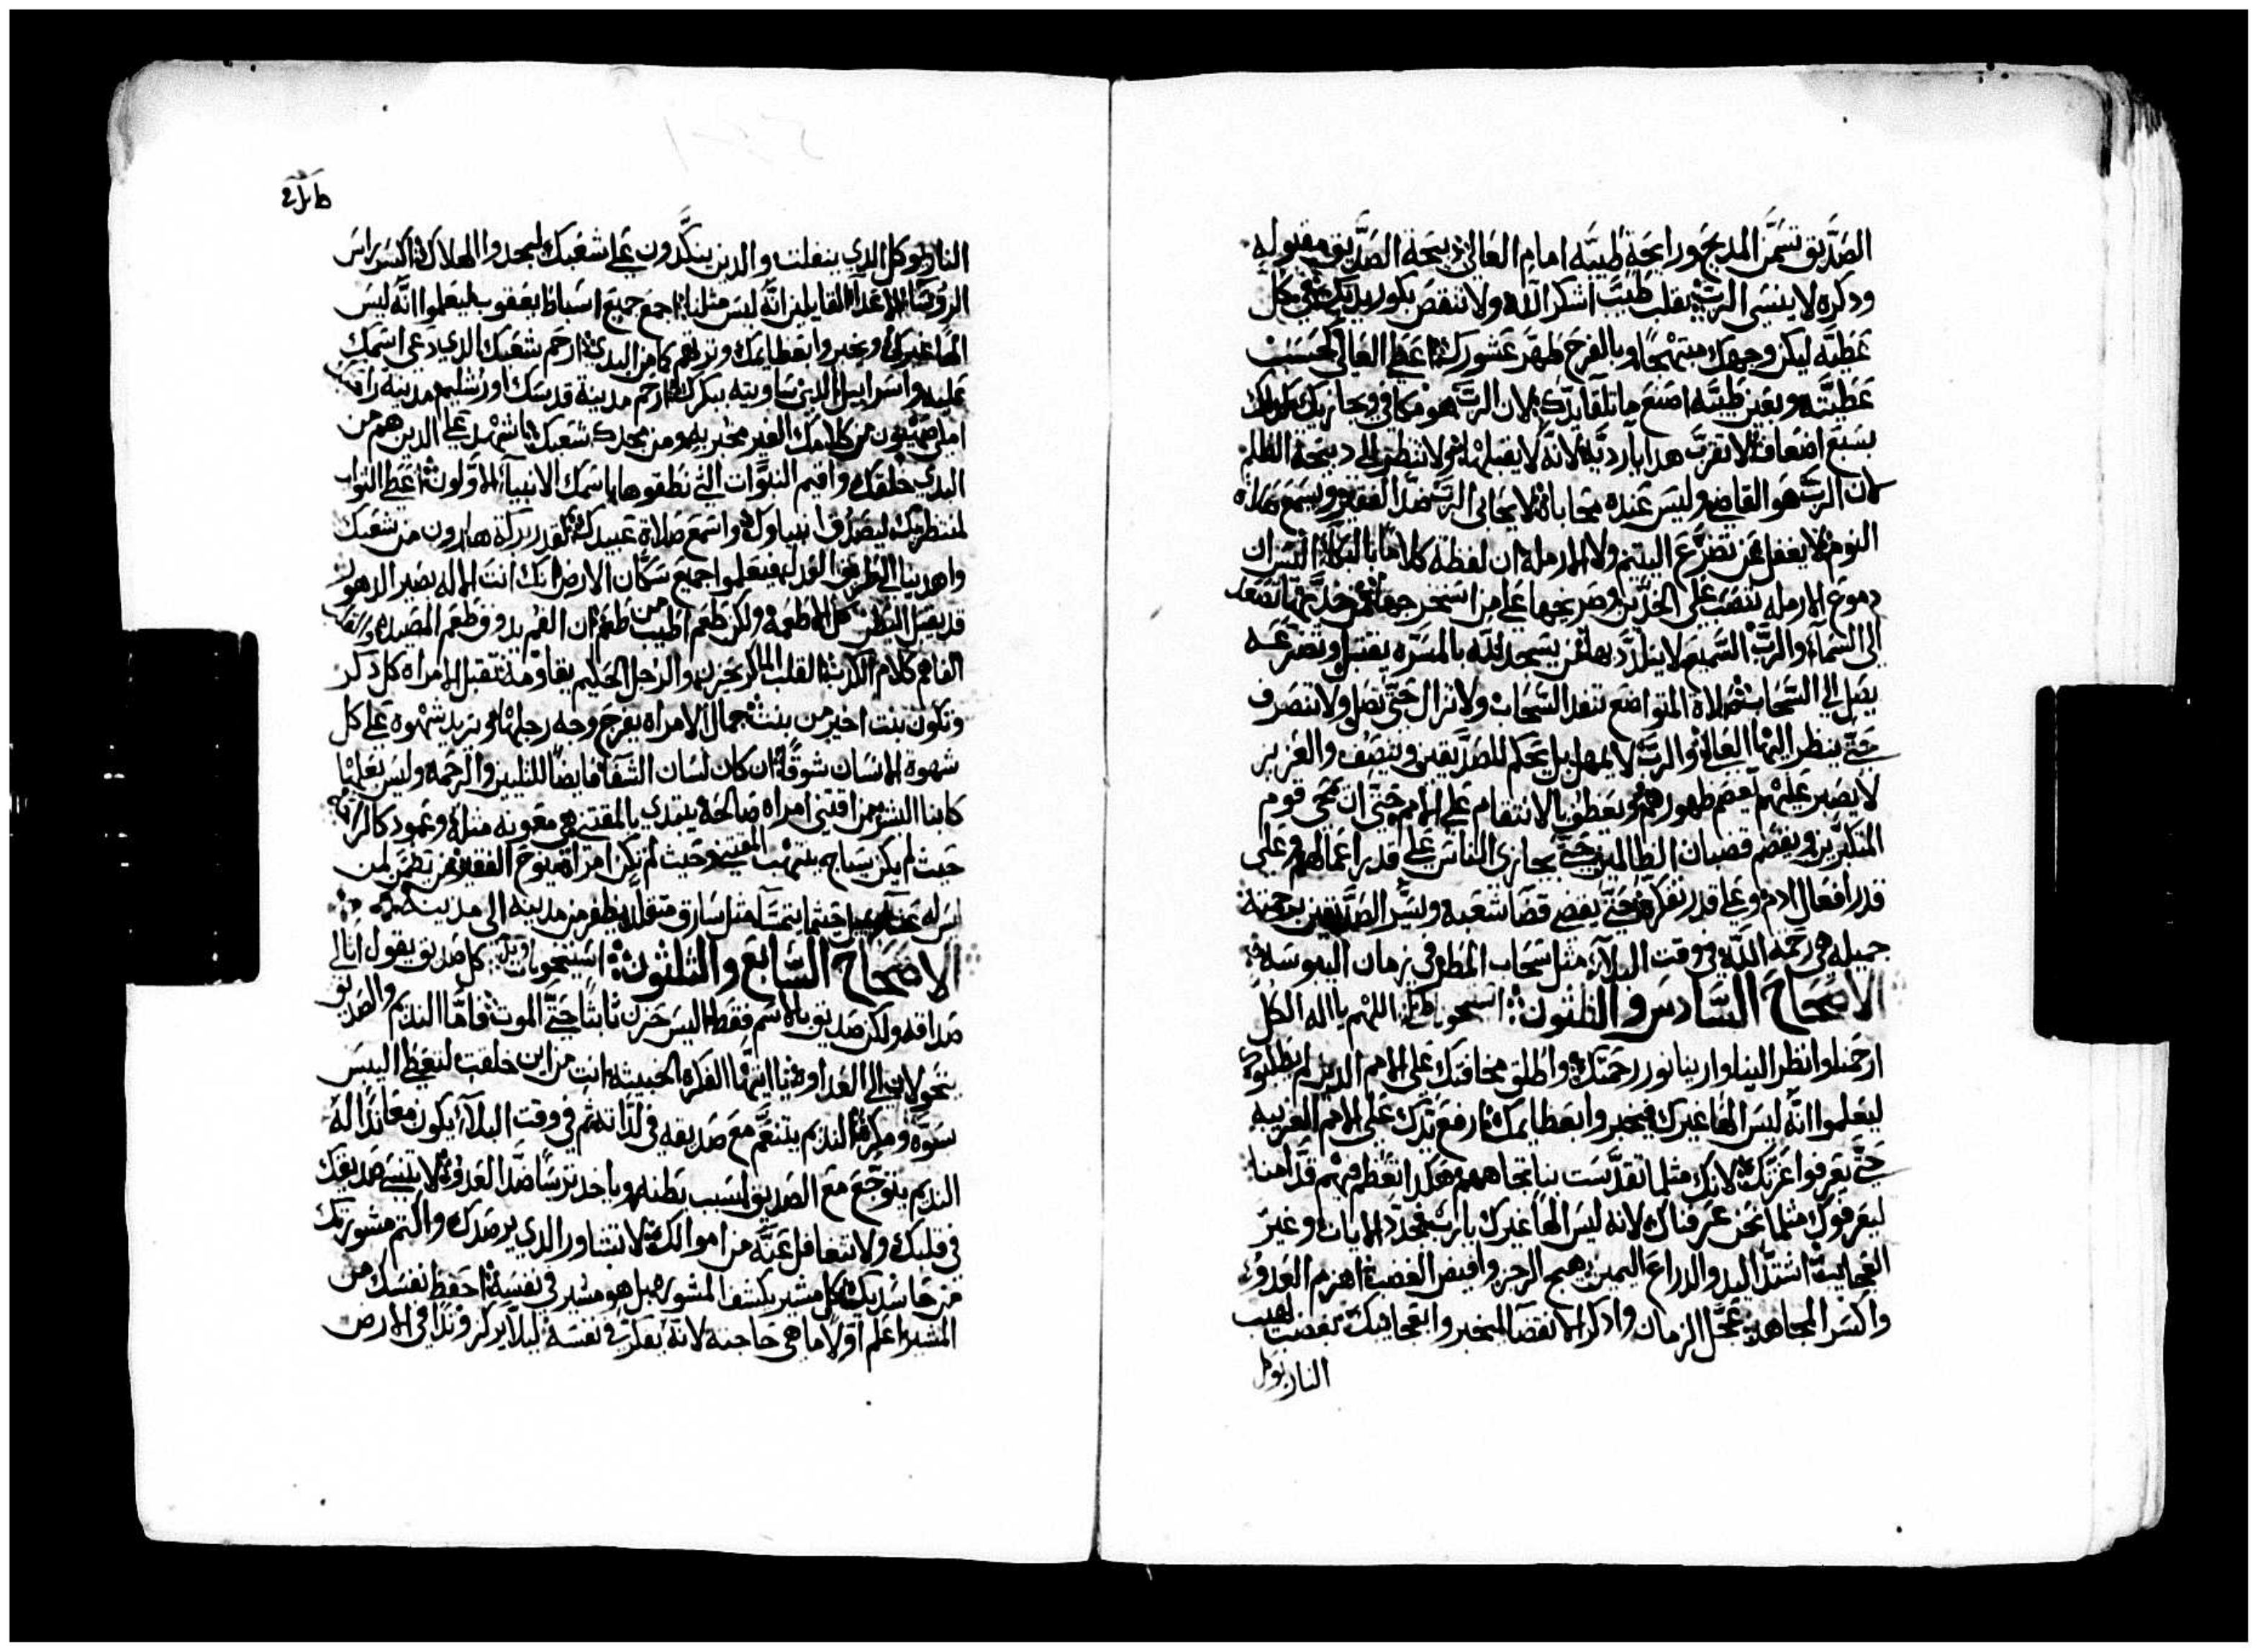 الصدّيق تسمّن المدبح ورايحة طيبّه امام العالي دبيحة الصدّيق مقبوله
ودكره لا ينسى الربّ بقلب طيّب اشكر الله ولا تنقص بكور يديك في كل
عطيّه ليكن وجهك مبتهجًا وبالفرح طهّر عشورك اعطِ العالي كحسب
عطيّته وبعين طيّبه اصنع ما تلقا يدك لان الربّ هو مكافي ويجازيك
بسبع اضعاف لا تقرّب هدايا رديّه لانه لا يقبلها ولا تنظر الى دبيحة الظلم
لان الربّ هو القاضي وليس عنده محاباة لا يحابي الربّ ضدّ الفقير ويسمع صلاة
المظلوم لا يغفل عن تضرّع اليتيم ولا الارمله ان لفظة كلاما بالبكا اليس ان
دموع الارمله تنصب على الخدّين وصريخها على من استخرجها من خدّيها تصعد
الى السمآء والربّ السميع لا يتلدّد بها من يسجد لله بالمسرّه يقتبل وتضرّعه
يصل الى السحاب صلاة المتواضع تنفد السحاب ولا تزال حتّى تصل ولا تنصرف
حتّى ينظر اليها العالي والربّ لا يمهل بل يحكم للصدّيقين وينصف والعزيز
لا يصبر عليهم ليقصم ظهورهم ويعطي الانتقام على الامم حتّى ان يمحى قوم
المتكبّرين ويقصم قضبان الظالمين حتّى يجازى الناس على قدر اعمالهم وعلى
قدر افعال ادم وعلى قدر تفكّره حتّى يقضي قضا شعبه ويسرّ الصدّيقين برحمته
جميله هي رحمة الله في وقت البلآء مثل سحاب المطر في زمان اليبوسه
الاصحاح السّادس والثلثون استيخو اللهم يا اله الكل
ارحمنا وانظر الينا وارينا نور رحمتك واطلق مخافتك على الامم الدين لم يطلبوك
ليعلموا انّه ليس الهًا غيرك فيخبروا بعظايمك ارفع يدك على الامم الغريبه
حتّى يعرفوا عزتك لانك مثلما تقدّست بنا تجاههم هكدا تعظم فيهم قدّامنا
ليعرفوك مثلما نحن عرفناك لانه ليس الهًا غيرك يا ربّ فجدّد الايات وغيّر
العجايب اشتدّ اليد والدراع اليمين هيج الرجز وافيض الغضب اهزم العدو
واكسر المجاهد عجّل الزمان وادكر الانقضا ليخبروا بعجايبك بغضب لهيب
النار يوكل
النار يوكل الدي ينفلت والدين ينكّدون على شعبك ليجدوا الهلاك اكسر راس
الرؤسا الاعدآ القايلين انّه ليس مثلنا اجمع جميع اسباط يعقوب ليعلموا انّه ليس
الهًا غيرك ويخبروا بعظايمك وترثهم كما من البدي ارحم شعبك الدي دعى اسمك
عليه واسراييل الدي ساويته ببكرك ارحم مدينة قدسك اورشليم مدينة راحتك
املى صهيون من كلامك الغير مخبر به ومن مجدك شعبك اشهد على الدين هم من
البدي خلقك واقيم النبوّات التي نطقوها باسمك الانبيآء الاوّلون اعطِ الثواب
لمنتظريك ليصدّق انبياوك واسمع صلاة عبيدك كقدر بركة هارون من شعبك
واهدينا الى طريق العدل فيعلموا جميع سكّان الارض انك انت الاله بصير الدهور
قد يقبل البطن كل الاطعمة ولكن طعم اطيب من طعم ان الفم يدوق طعم المصيد والقلب
الفاهم كلام الكدب القلب الماكر يحزن والرجل الحكيم يقاومه تتقبل الامراه كل دكر
وتكون بنت اخير من بنت جمال الامراه يفرح وجه رجلها ويزيد شهوه على كل
شهوة الانسان شوقًا ان كان لسان الشفا فايضًا للتليين والرحمه وليس بعلها
كابنا البشر من اقتنى امراه صالحة يبتدي بالمقتنى هي معونه مثله وعمود كالراحة
حيث لم يكن سياج ينتهب المقتنى وحيث لم تكن امراه ينوح الفقير من يطمن لمن
ليس له عش ويميل حيثما يتمسّا مثل سارق متقلّد يطفر من مدينه الى مدينه
الاصحاح السّابع والثلثون استيخو كل صديق يقول انا لي
صداقه ولكن صديق بالاسم فقط اليس حزن ثابتًا حتّى الموت فامّا النديم والصديق
يتحولان الى العداوة يا ايتها الفكرة الخبيثة انت من اين خلقت لتغطي اليبس
سوّه ومكره النديم يتنعّم مع صديقه في لدّاته ثم في وقت البلآء يكون معاندًا له
النديم يتوجّع مع الصديق لسبب بطنه وياخد ترسًا ضدّ العدو لا تنسى صديقك
في قلبك ولا تتغافل عنّه من اموالك لا تتشاور الدي يرصدك واكتم مشورتك
من حاسديك كل مشير يكشف المشوره بل هو مشير في نفسه احفظ نفسك من
المشير اعلم اوّلًا ما هي حاجته لانه يفكّر في نفسه ليلا يركز وتدًا في الارض